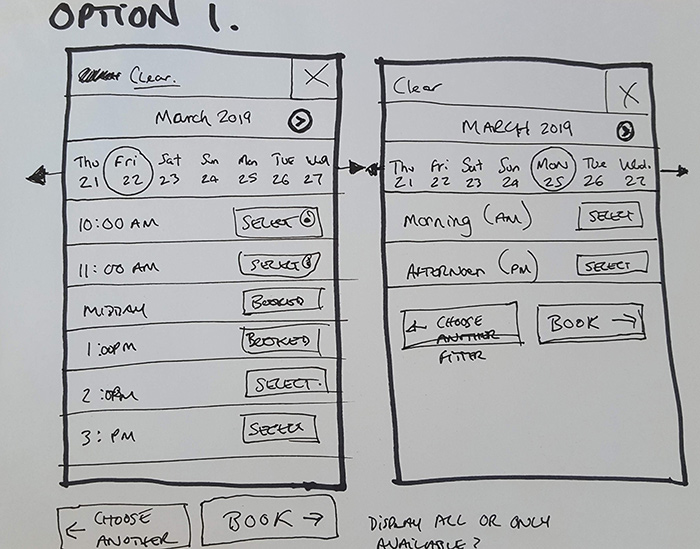 OPTION 1.
Clear.
X
March 2019
Thu Fri Sat Sun Mon Tue Wed
21 22 23 24 25 26 27
10:00 AM SELECT
11:00 AM SELECT
MIDDAY BOOKED
1:00PM BOOKED
2:0PM SELECT.
3: PM SELECT
← CHOOSE ANOTHER
BOOK →
Clear
X
MARCH 2019
Thu Fri Sat Sun Mon Tue Wed.
21 22 23 24 25 26 27
Morning (AM) SELECT
AFTERNOON (PM) SELECT
← CHOOSE
ANOTHER
FITTER
BOOK →
DISPLAY ALL OR ONLY
AVAILABLE?